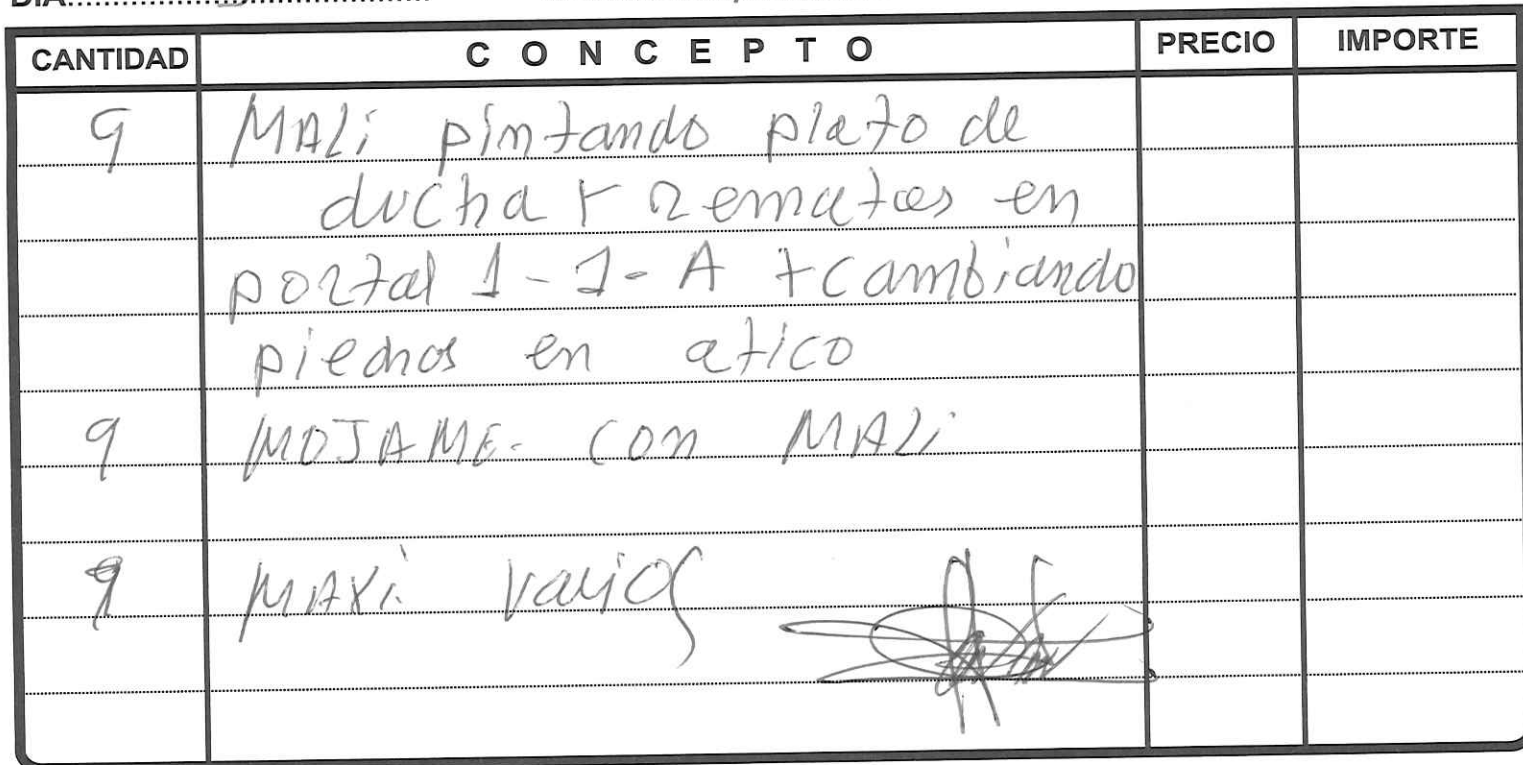 DIA
CANTIDAD CONCEPTO PRECIO IMPORTE
9 MALi pintando plato de
ducha + Rematas en
portal 1-1-A + cambiando
piedras en atico
9 MOJAME. con MALi
9 MAXi varios